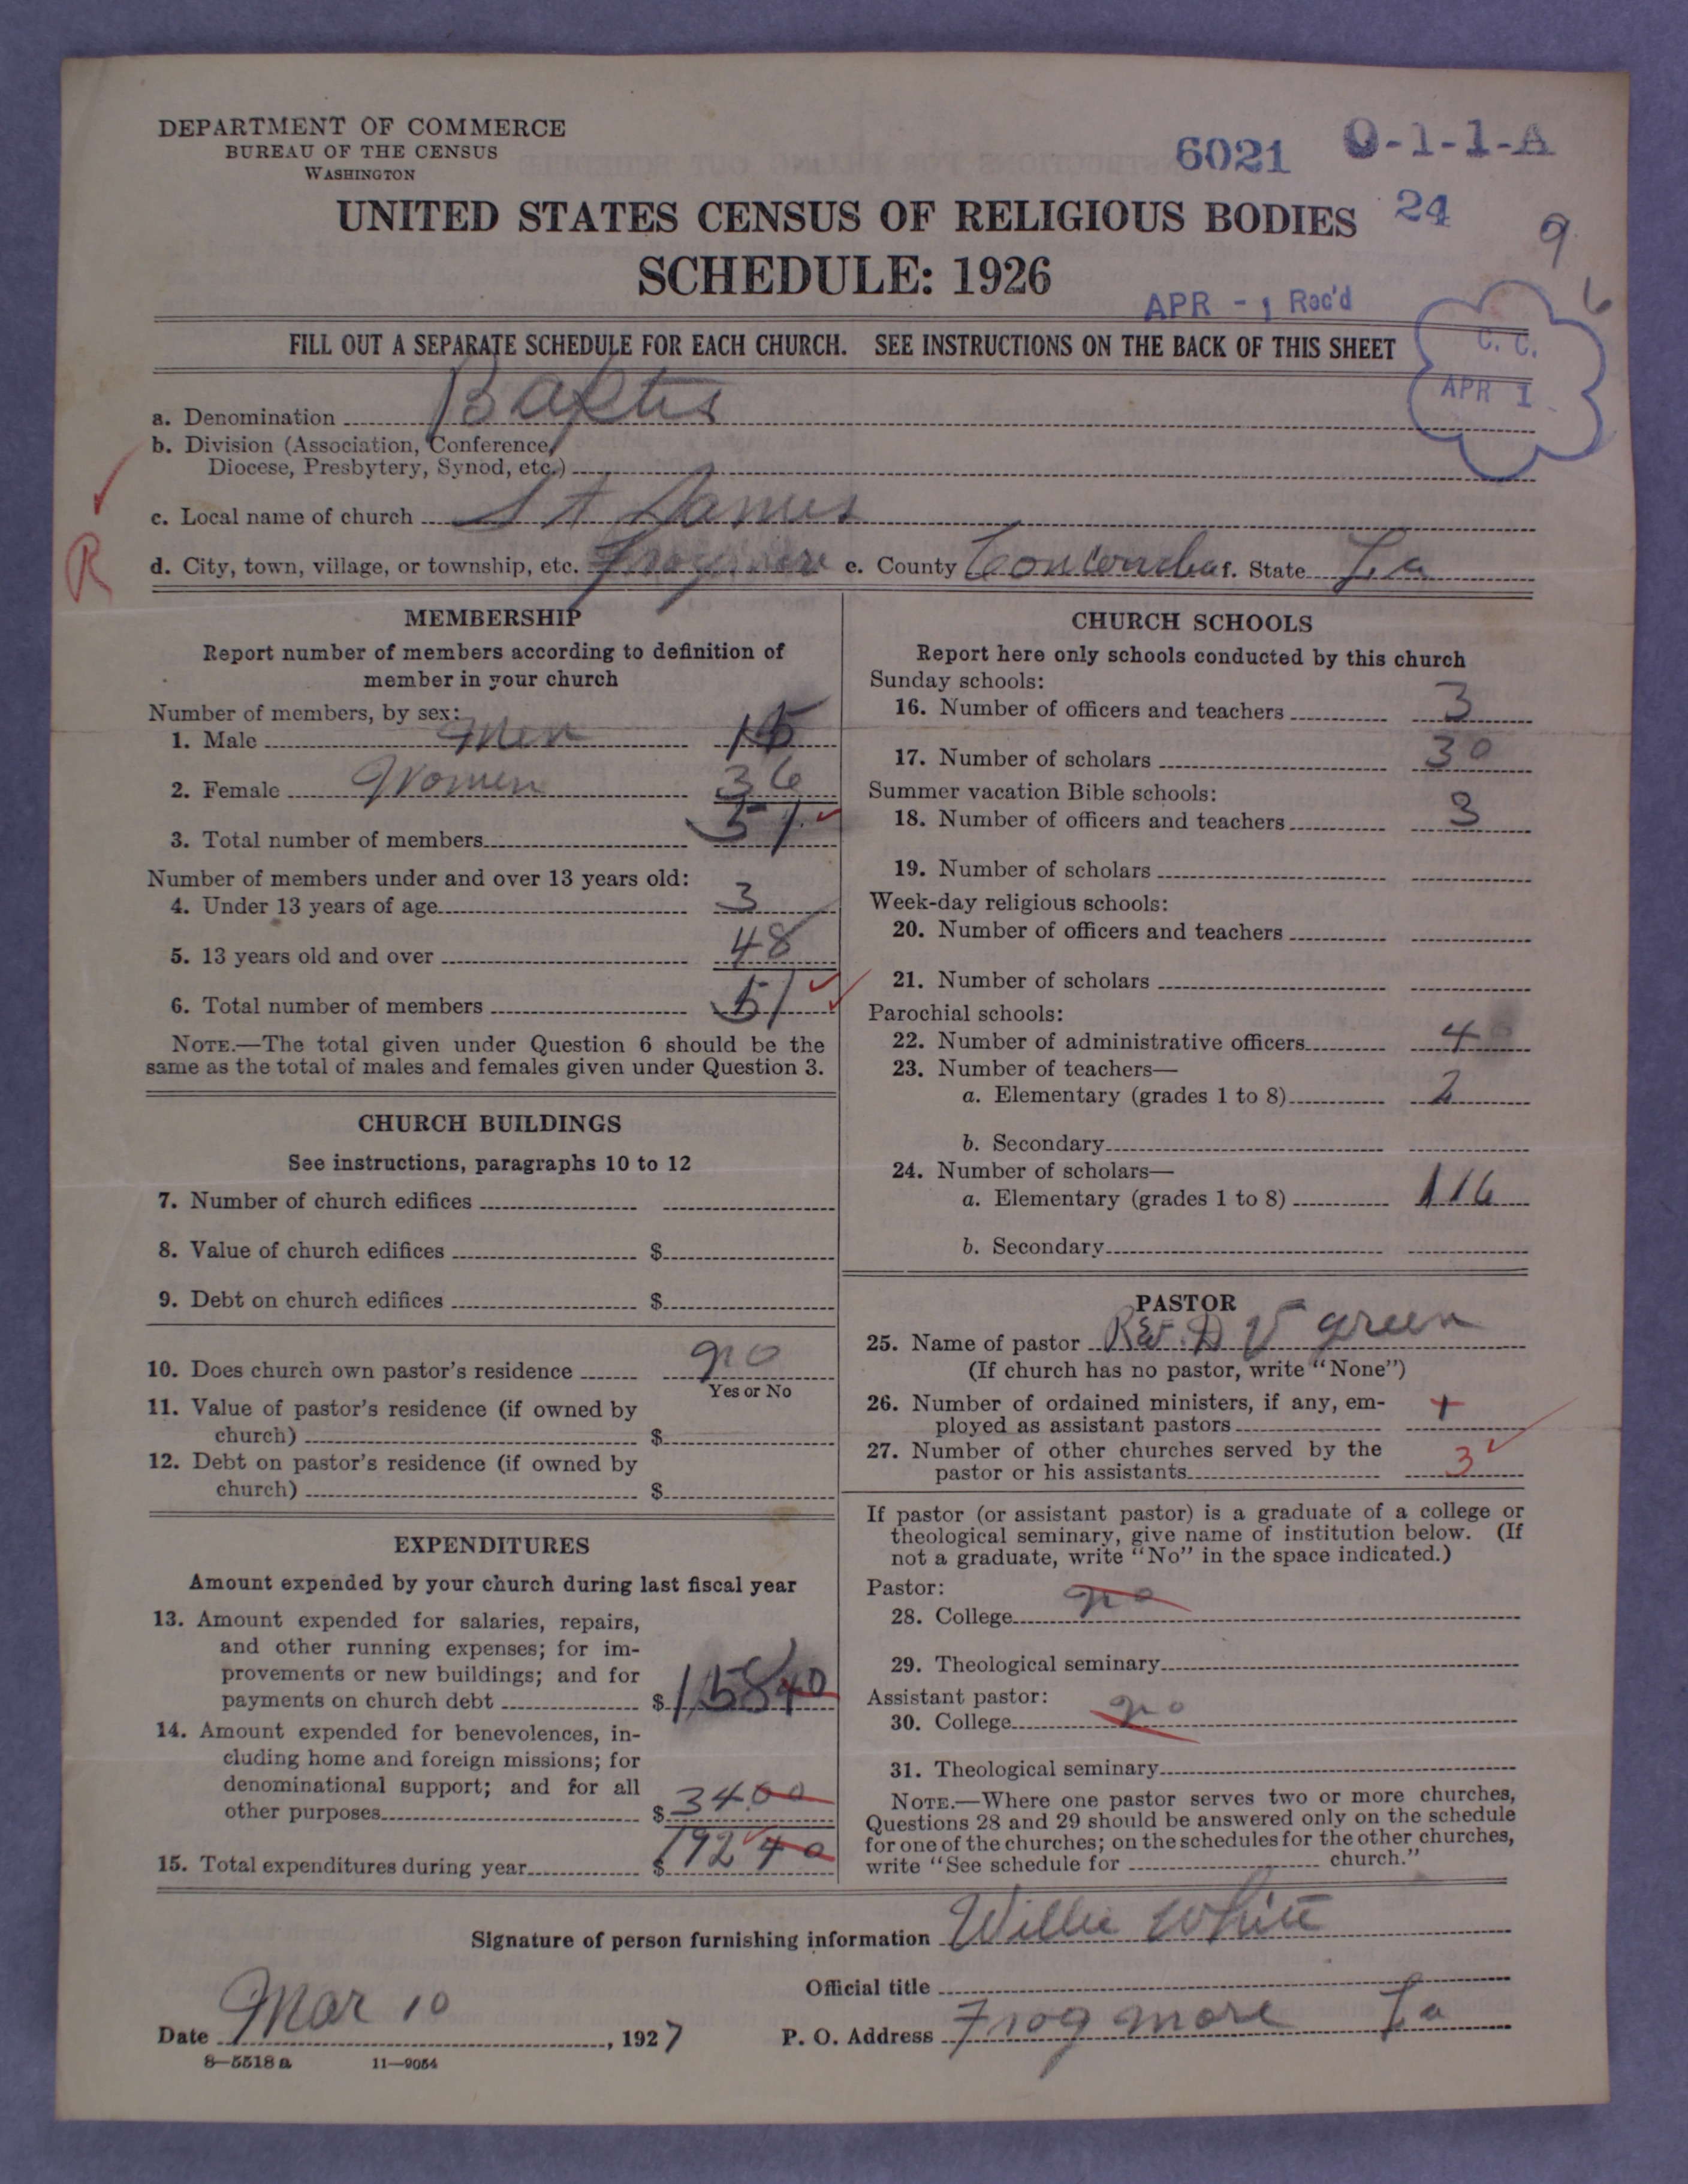 DEPARTMENT OF COMMERCE
BUREAU OF THE CENSUS
WASHINGTON
6021 0-1-1-A
UNITED STATES CENSUS OF RELIGIOUS BODIES 24
9
SCHEDULE: 1926
6
APR - 1 Rec'd
FILL OUT A SEPARATE SCHEDULE FOR EACH CHURCH. SEE INSTRUCTIONS ON THE BACK OF THIS SHEET
C. C.
APR 1
a. Denomination Baptis
b. Division (Association, Conference,
Diocese, Presbytery, Synod, etc.)
c. Local name of church St James
R
d. City, town, village, or township, etc. Frogmore e. County f. State La
MEMBERSHIP
Report number of members according to definition of
member in your church
Number of members, by sex:
1. Male Men 15
2. Female Women 36
3. Total number of members 51
Number of members under and over 13 years old:
4. Under 13 years of age 3
5. 13 years old and over 48
6. Total number of members 51
NOTE.—The total given under Question 6 should be the
same as the total of males and females given under Question 3.
CHURCH BUILDINGS
See instructions, paragraphs 10 to 12
7. Number of church edifices
8. Value of church edifices $
9. Debt on church edifices $
10. Does church own pastor's residence no
Yes or No
11. Value of pastor's residence (if owned by
church) $
12. Debt on pastor's residence (if owned by
church) $
EXPENDITURES
Amount expended by your church during last fiscal year
13. Amount expended for salaries, repairs,
and other running expenses; for im-
provements or new buildings; and for
payments on church debt $ 158 40
14. Amount expended for benevolences, in-
cluding home and foreign missions; for
denominational support; and for all
other purposes $ 34.00
15. Total expenditures during year $ 192 40
CHURCH SCHOOLS
Report here only schools conducted by this church
Sunday schools:
16. Number of officers and teachers 3
17. Number of scholars 30
Summer vacation Bible schools:
18. Number of officers and teachers 3
19. Number of scholars
Week-day religious schools:
20. Number of officers and teachers
21. Number of scholars
Parochial schools:
22. Number of administrative officers 4
23. Number of teachers—
a. Elementary (grades 1 to 8) 2
b. Secondary
24. Number of scholars—
a. Elementary (grades 1 to 8) 116
b. Secondary
PASTOR
25. Name of pastor Rev. D V green
(If church has no pastor, write "None")
26. Number of ordained ministers, if any, em-
ployed as assistant pastors
27. Number of other churches served by the
pastor or his assistants 3
If pastor (or assistant pastor) is a graduate of a college or
theological seminary, give name of institution below. (If
not a graduate, write "No" in the space indicated.)
Pastor:
28. College no
29. Theological seminary
Assistant pastor:
30. College no
31. Theological seminary
NOTE.—Where one pastor serves two or more churches,
Questions 28 and 29 should be answered only on the schedule
for one of the churches; on the schedules for the other churches,
write "See schedule for church."
Signature of person furnishing information Willie White
Official title
Date Mar 10, 1927 P. O. Address Frogmore La
8—5518 a 11—9054